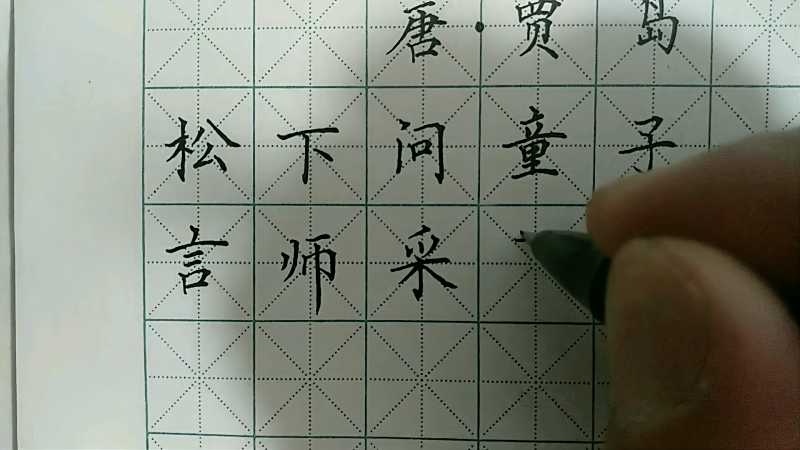 唐·贾岛
松下问童子
言师采